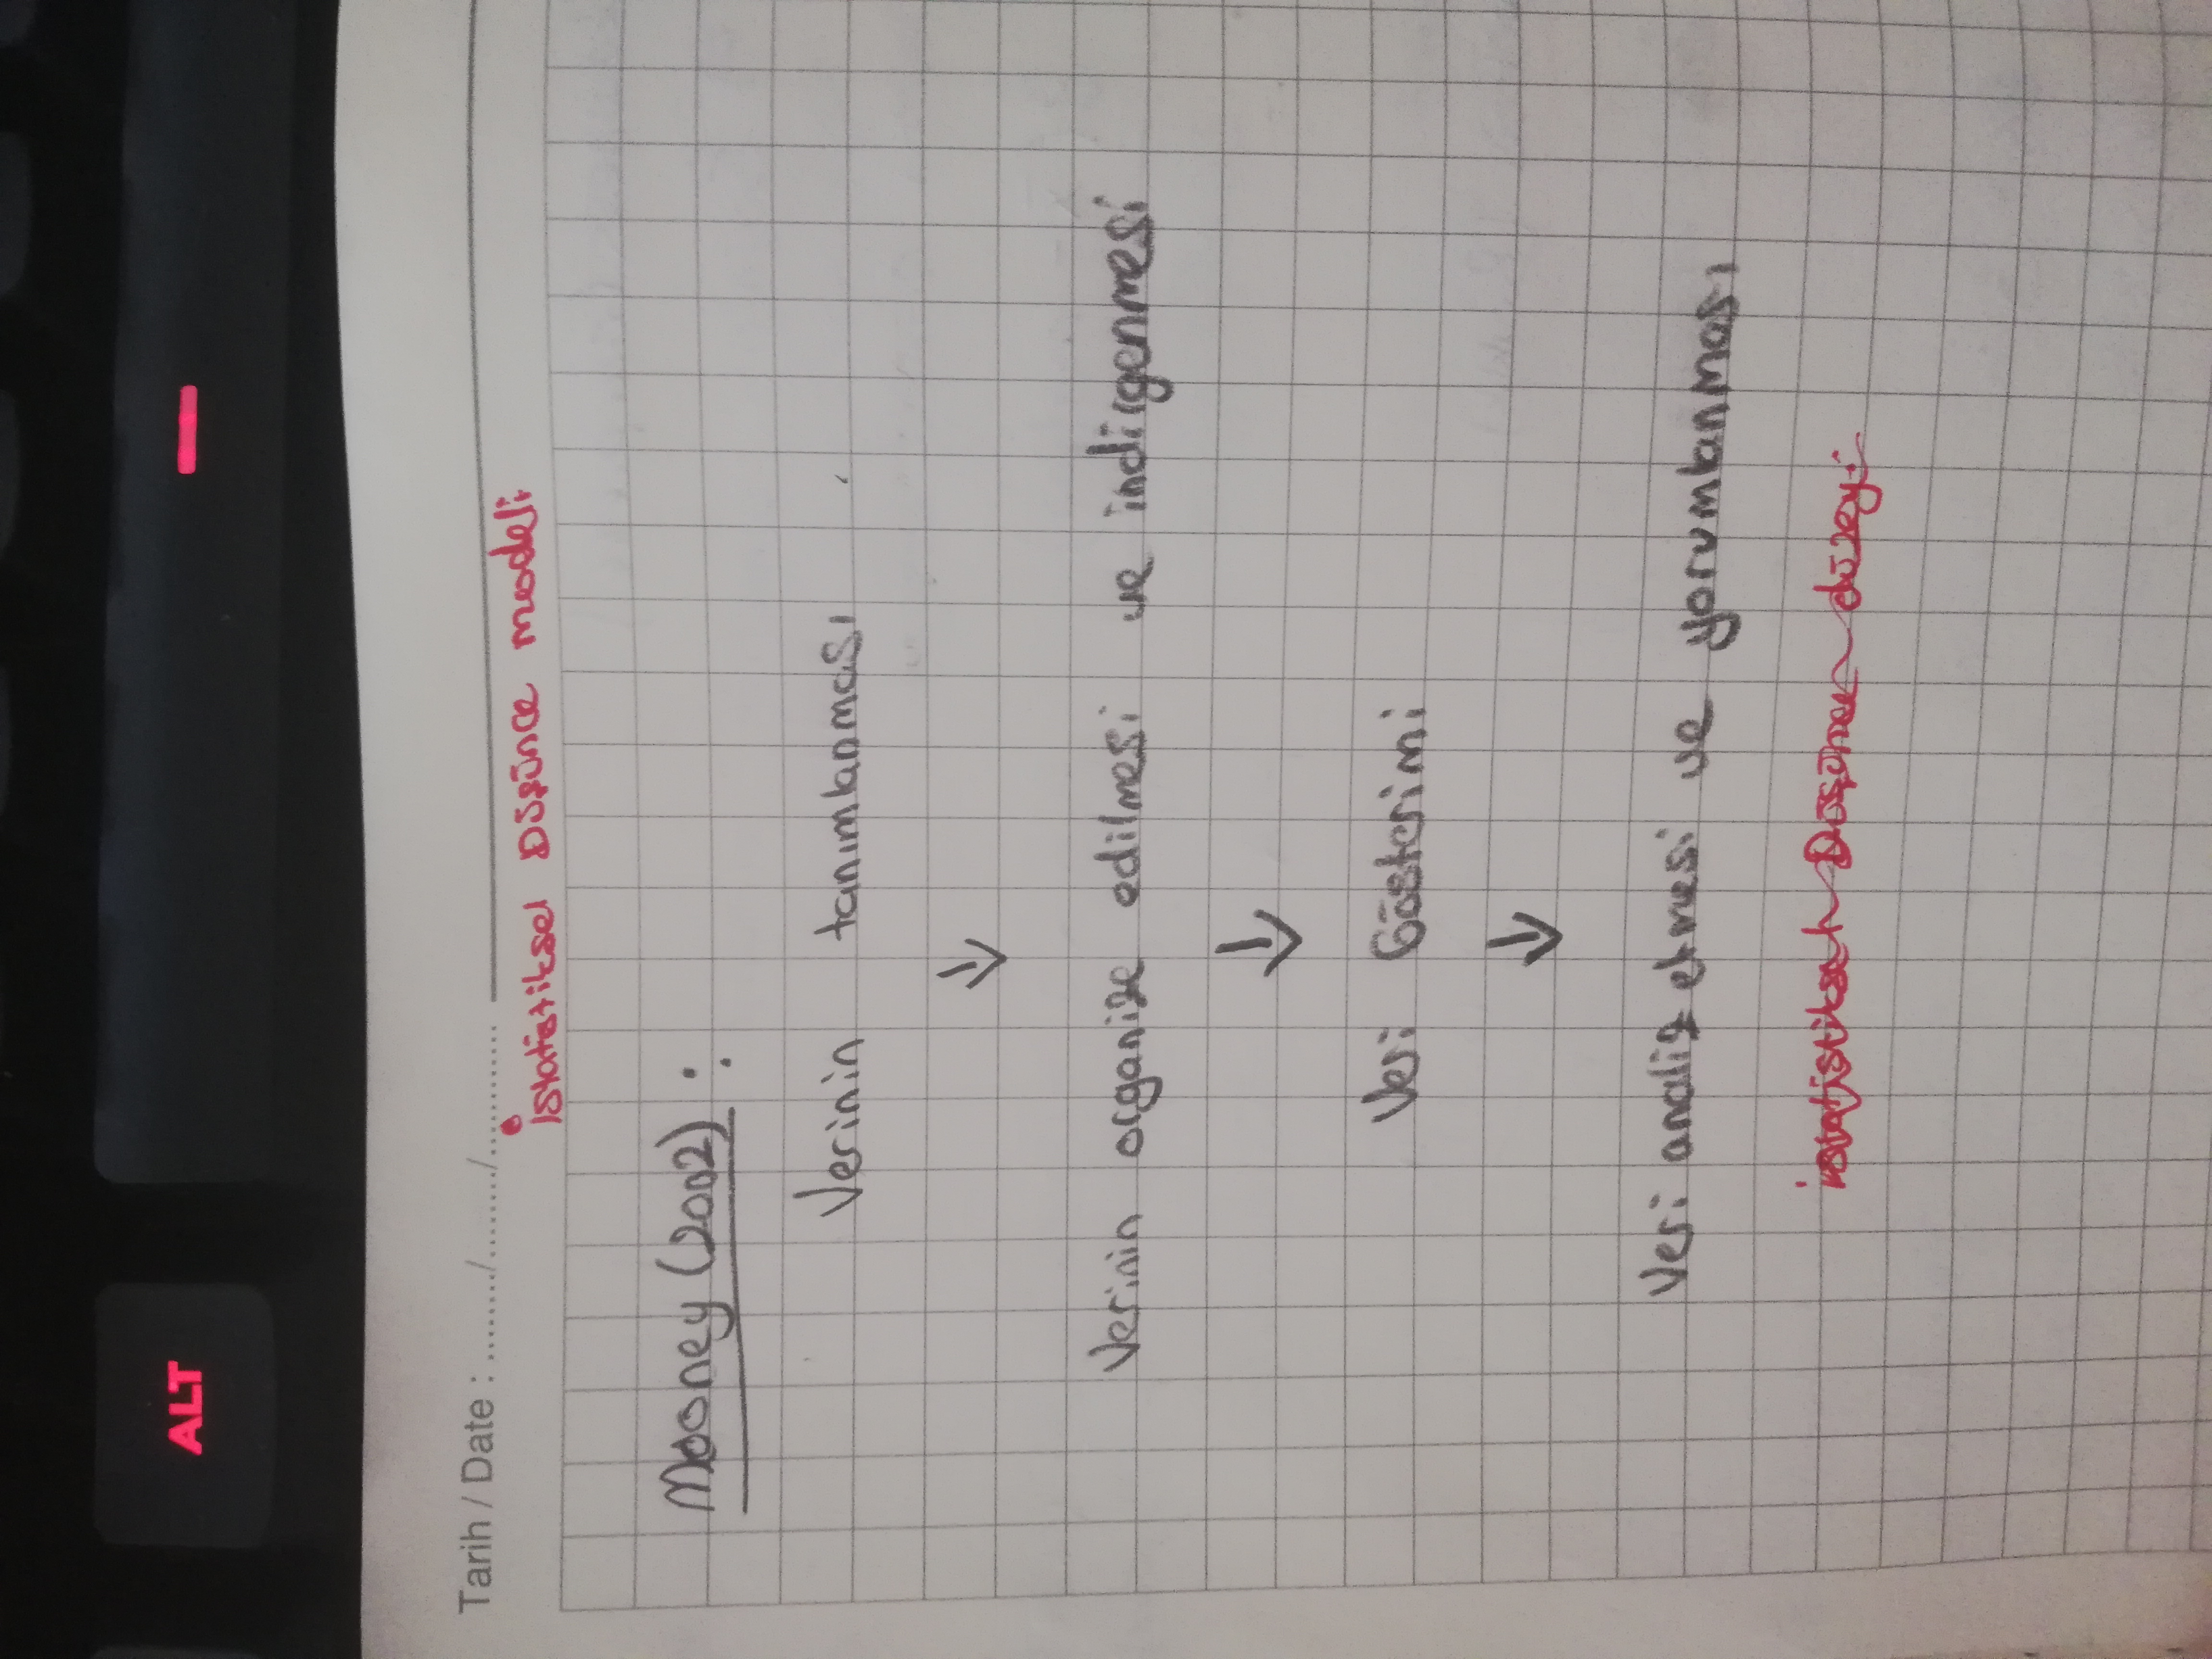 ALT
Tarih / Date : ......./......./..........
İstatistiksel Düşünce modeli
Mooney (2002) :
Verinin tanımlanması
↓
Verinin organize edilmesi ve indirgenmesi
↓
Veri Gösterimi
↓
Veri analiz etmesi ve yorumlanması
istatistiksel Düşünce düzeyi